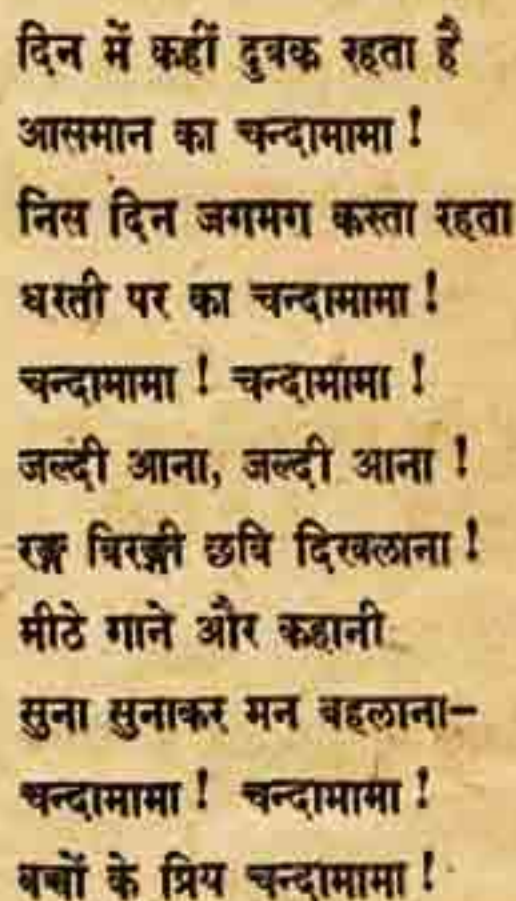 दिन में कहीं दुबक रहता है
आसमान का चन्दामामा !
निस दिन जगमग करता रहता
धरती पर का चन्दामामा !
चन्दामामा ! चन्दामामा !
जल्दी आना, जल्दी आना !
रङ्ग बिरङ्गी छबि दिखलाना !
मीठे गाने और कहानी
सुना सुनाकर मन बहलाना—
चन्दामामा ! चन्दामामा !
बच्चों के प्रिय चन्दामामा !